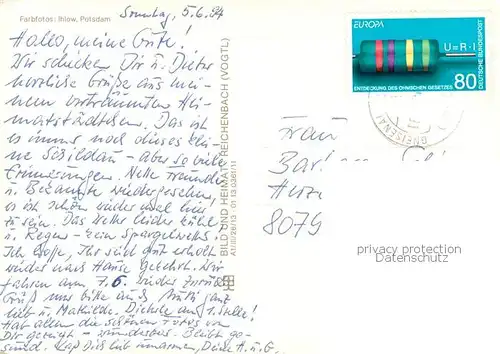 Farbfotos: Ihlow, Potsdam
Sonntag, 5.6.94
Hallo, meine Gute!
Wir schicken Dir u. Dieter
herzliche Grüße aus mei-
nem verträumten Hei-
matstädtchen. Das ist
es immer noch dieses klei-
ne Schildau - aber so viele
Erinnerungen. Nette Freunde
u. Bekannte wiedergesehen,
es ist schön wieder mal hier
zu sein. Das Wetter leider kühl
u. Regen - kein Spargelwetter.
Ich hoffe, Ihr seid gut erholt
wieder nach Hause gekehrt. Wir
fahren am 7.6. wieder zurück.
Grüß uns bitte auch ganz
lieb u. Mathilde.
Hab allen die schönen Fotos von
Dir gezeigt - wunderbar. Bleibt ge-
sund. Laß Dich lieb umarmen, Deine H. u. G.
BILD UND HEIMAT REICHENBACH (VOGTL)
A1/III/26/13 01 13 0361/11
EUROPA
U=R·I
DEUTSCHE BUNDESPOST
ENTDECKUNG DES OHMSCHEN GESETZES
80
Frau
8079
privacy protection
Datenschutz